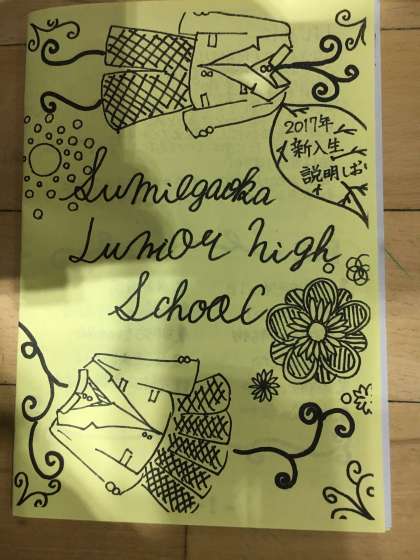 2017年
新入生
説明しお
Sumiegaoka
Junior high
School